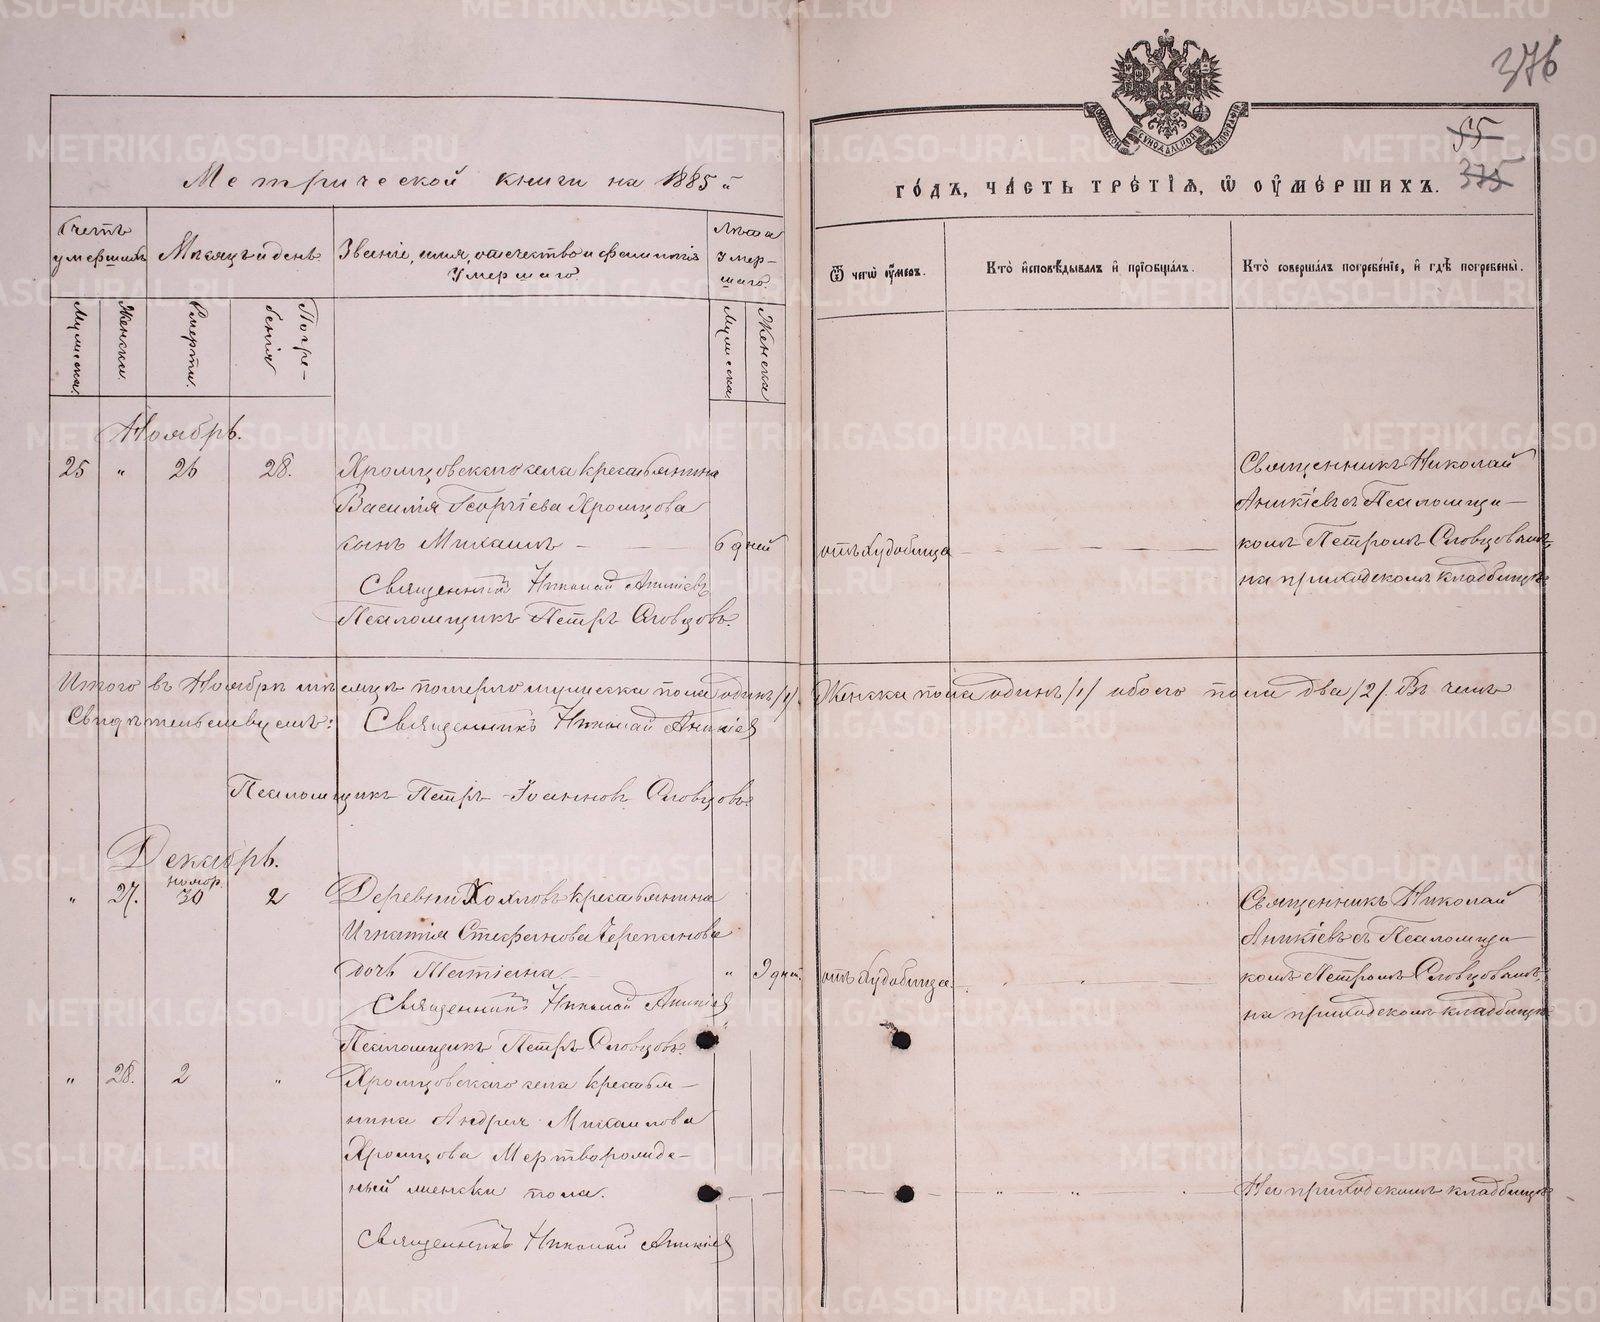 376
55
375
Метрической книги на 1885й
го́дъ, ча́сть тре́тїѧ, ѡ҆ ᲂу҆ме́ршихъ.
Счетъ умершихъ
Мѣсяцъ и день
Званіе, имя, отчество и фамилія умершаго.
Лѣта умершаго.
Ѿ чегѡ̀ ᲂу҆́меръ.
Кто̀ и҆сповѣ́дывалъ и҆ прїѻбща́лъ.
Кто̀ соверша́лъ погребе́нїе, и҆ гдѣ̀ погребены̀.
Мужеска.
Женска.
Смерти.
Погребенія
Мужеска
Женска
Ноябрь.
25 " 26 28. Хромцовскаго села крестьянина
Василія Георгіева Хромцова
сынъ Михаилъ — — 6 дней отъ худобища
Священникъ Николай Аникіевъ
Псаломщикъ Петръ Словцовъ.
Священникъ Николай
Аникіевъ съ Псаломщи-
комъ Петромъ Словцовымъ
на приходскомъ кладбищѣ
Итого въ Ноябрѣ мѣсяцѣ померло мужеска пола одинъ /1/. Женска пола одинъ /1/ обоего пола два /2/. Въ чемъ
Свидѣтельствуемъ: Священникъ Николай Аникіев
Псаломщикъ Петръ Іоанновъ Словцовъ
Декабрь.
ноябр.
" 27. 30 2 Деревни Хохловъ крестьянина
Игнатія Стефанова Черепанова
дочь Татіана — " 9 дней. отъ худобища.
Священникъ Николай Аникіев
Псаломщикъ Петръ Словцовъ.
Священникъ Николай
Аникіевъ съ Псаломщи-
комъ Петромъ Словцовымъ
на приходскомъ кладбищѣ
" 28. 2 " Хромцовскаго села крестья-
нина Андрея Михаилова
Хромцова Мертворожде-
ный женска пола. На приходскомъ кладбищѣ
Священникъ Николай Аникіев
METRIKI.GASO-URAL.RU